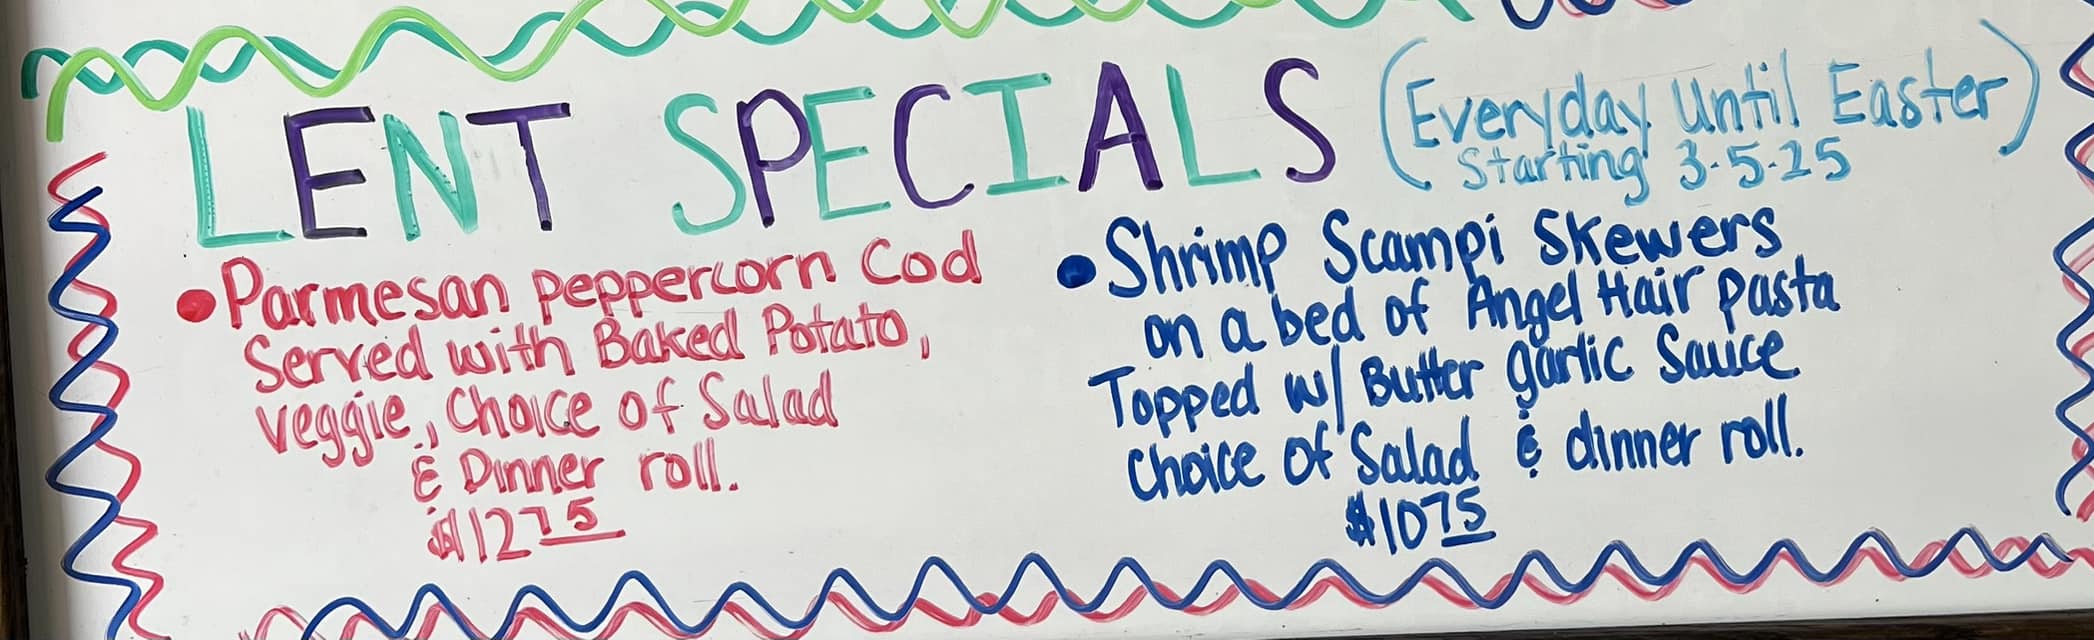 LENT SPECIALS (Everyday Until Easter)
Starting 3-5-25
• Parmesan peppercorn Cod
Served with Baked Potato,
veggie, Choice of Salad
& Dinner roll.
$12 75
• Shrimp Scampi Skewers
on a bed of Angel Hair pasta
Topped w/ Butter garlic Sauce
Choice Of Salad & dinner roll.
$10 75